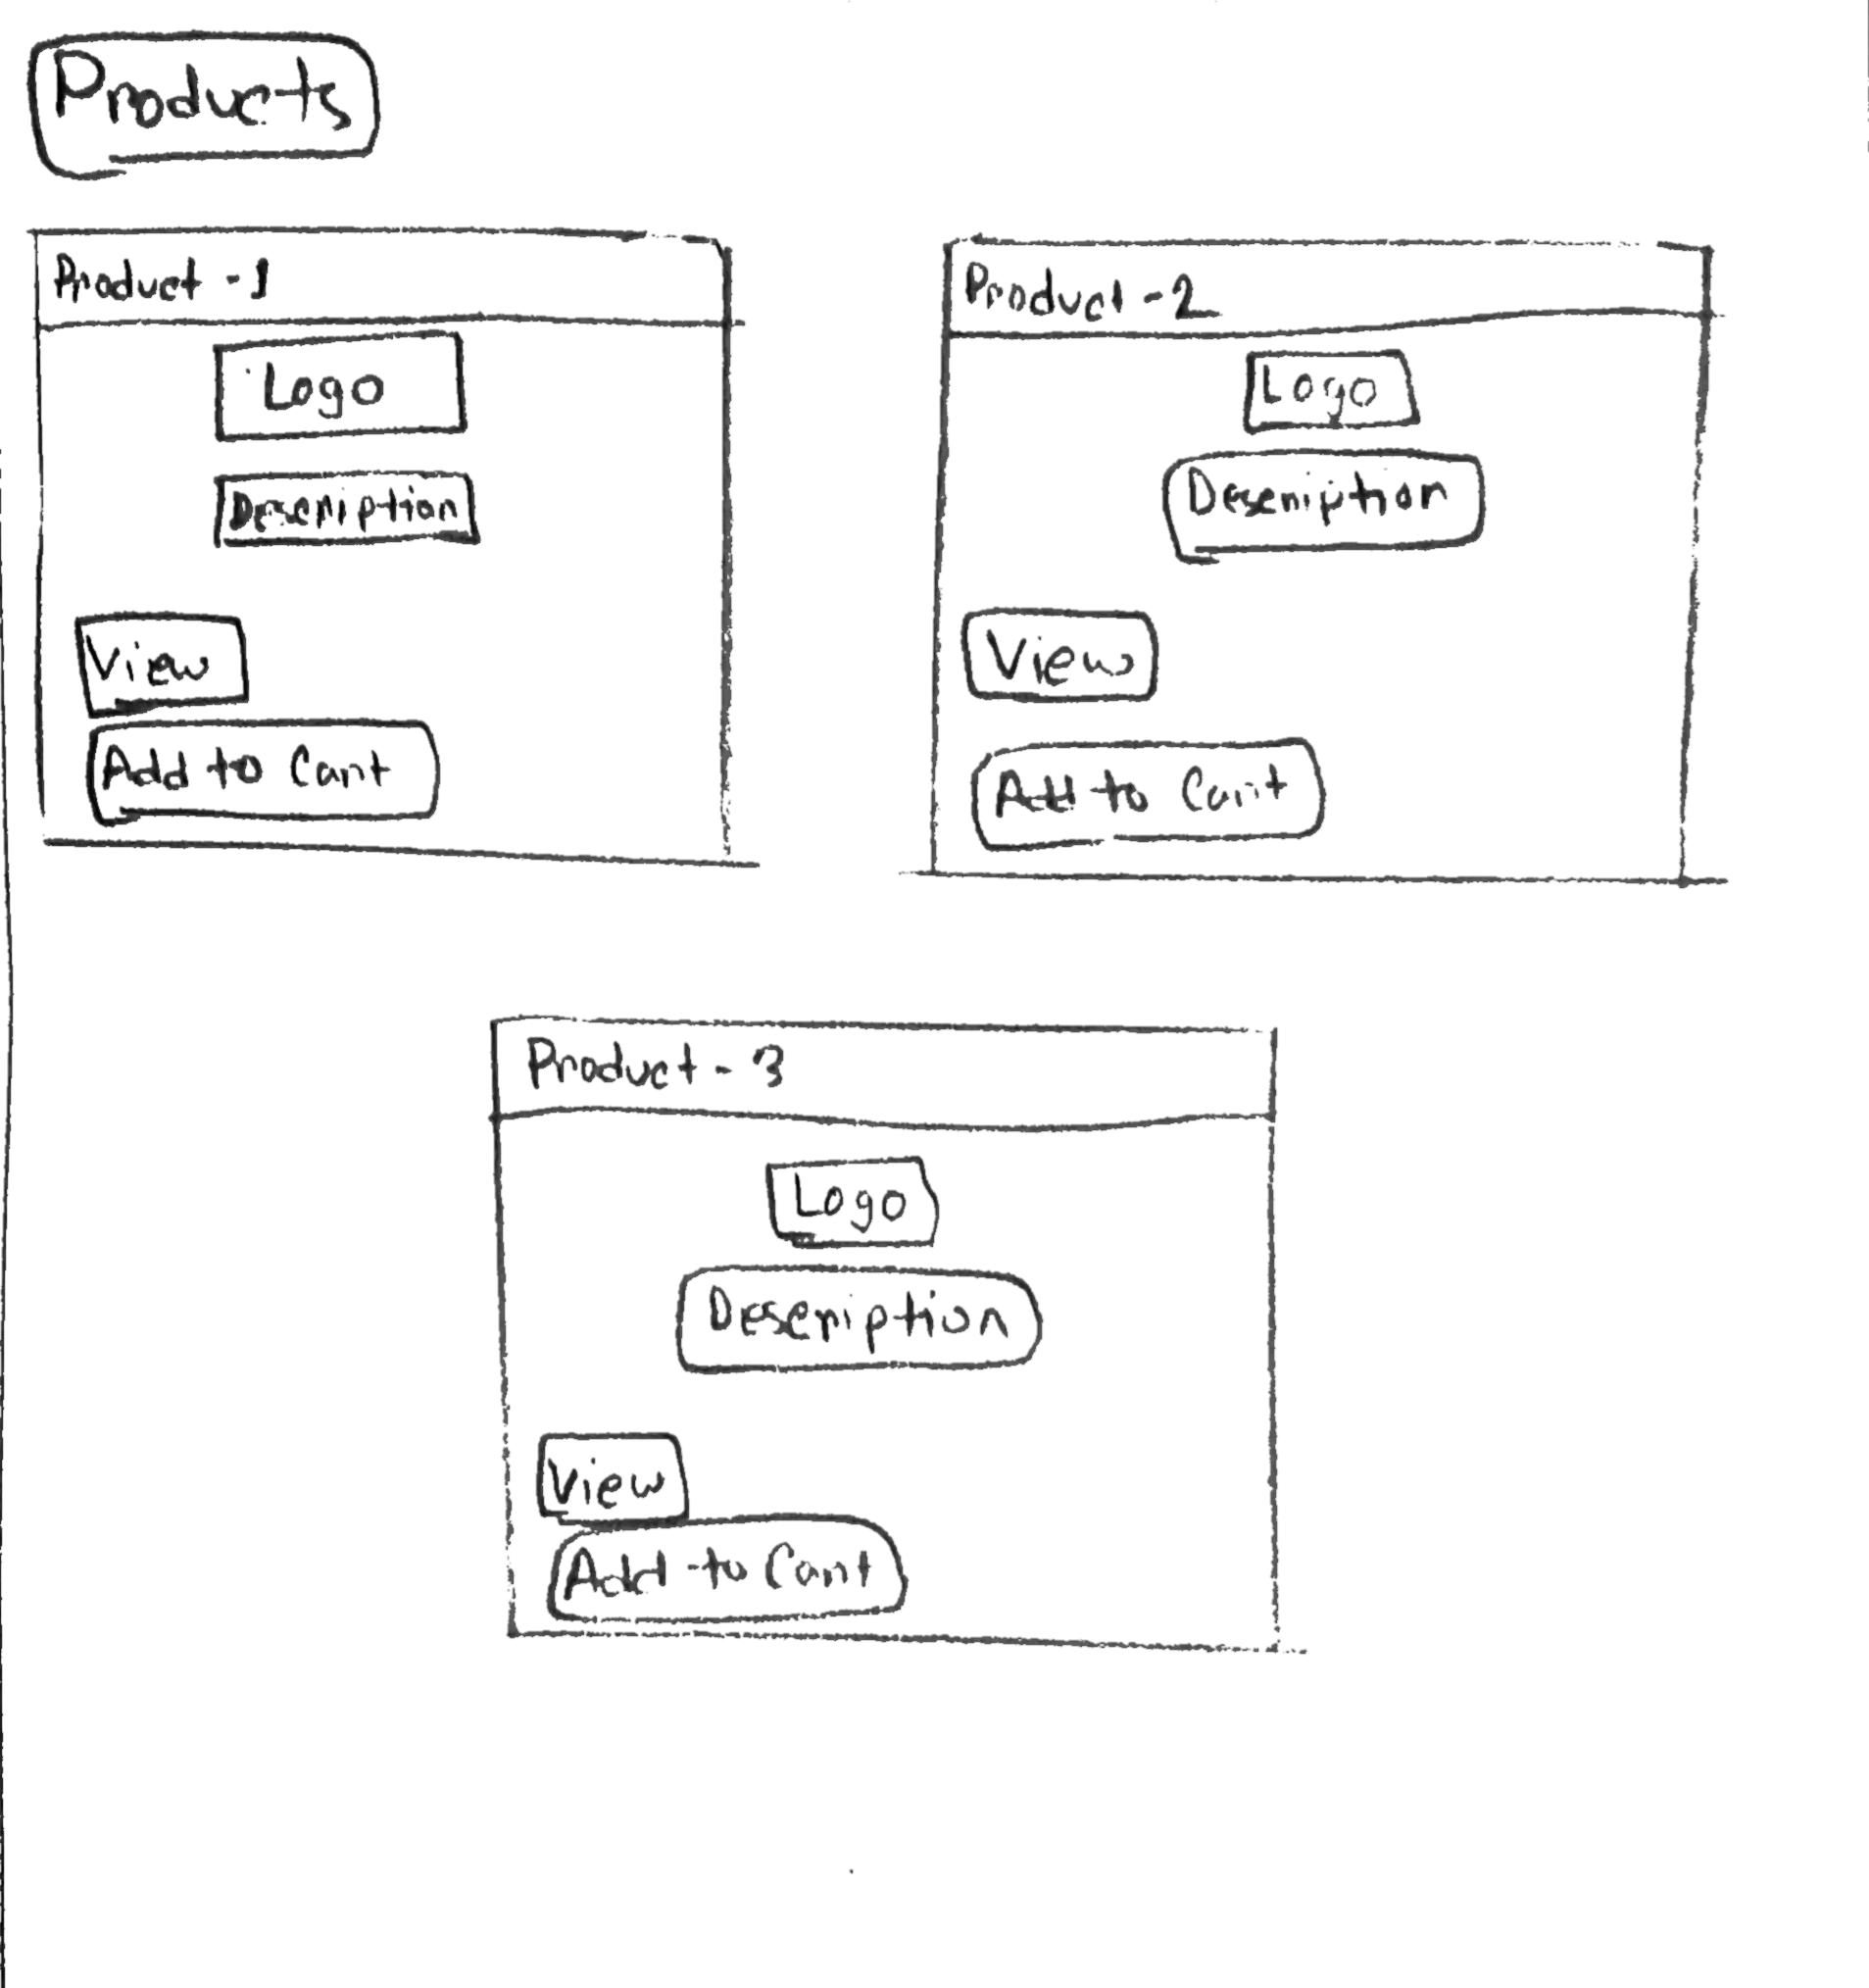 Products
Product - 1
Logo
Description
View
Add to Cart
Product - 2
Logo
Description
View
Add to Cart
Product - 3
Logo
Description
View
Add to Cart